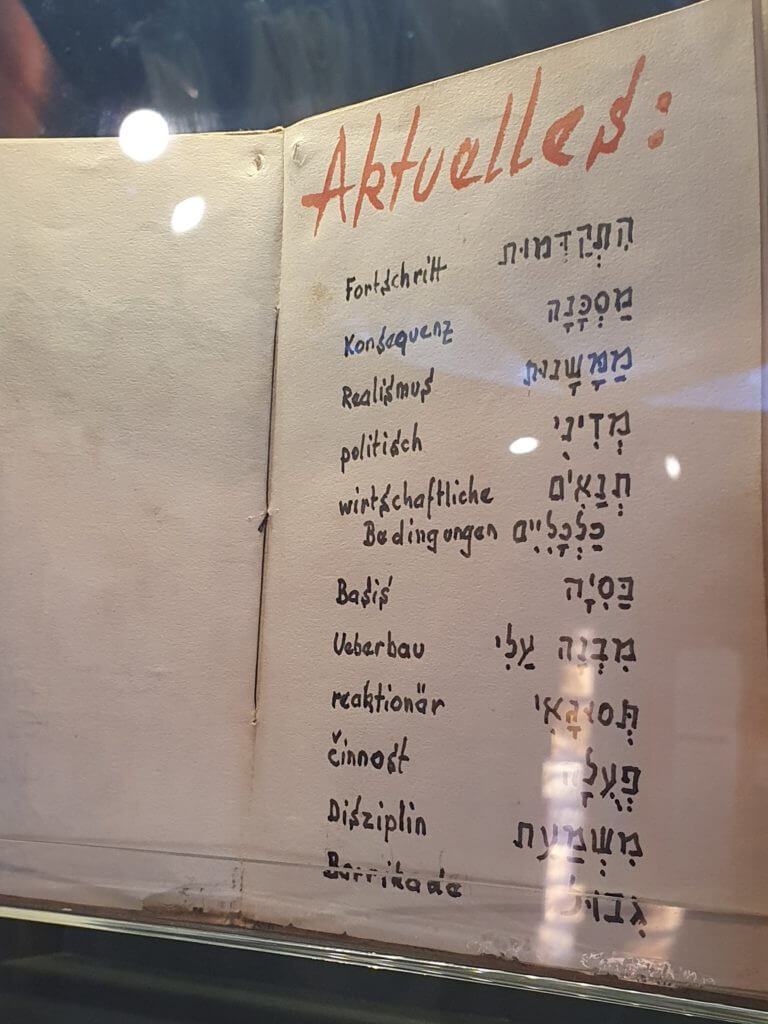 Aktuelles:
Fortschritt הִתְקַדְּמוּת
Konsequenz מַסְקָנָה
Realismus מַמָשָׁנוּת
politisch מְדִינִי
wirtschaftliche תְנַאִים
Bedingungen כַּלְכָּלִיִים
Basis בַּסִיָה
Ueberbau מִבְנֵה עַלִי
reaktionär
činnost פְּעֻלָּה
Disziplin מִשְׁמַעַת
Barrikade